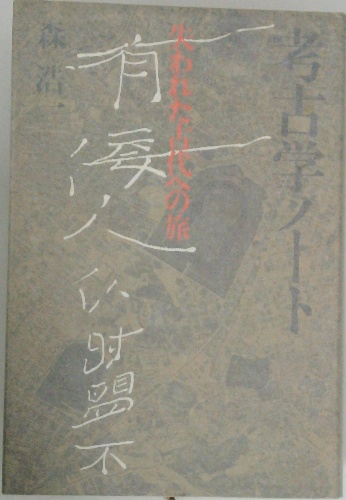 考古学ノート
失われた古代への旅
森浩一
有倭人以時盟不